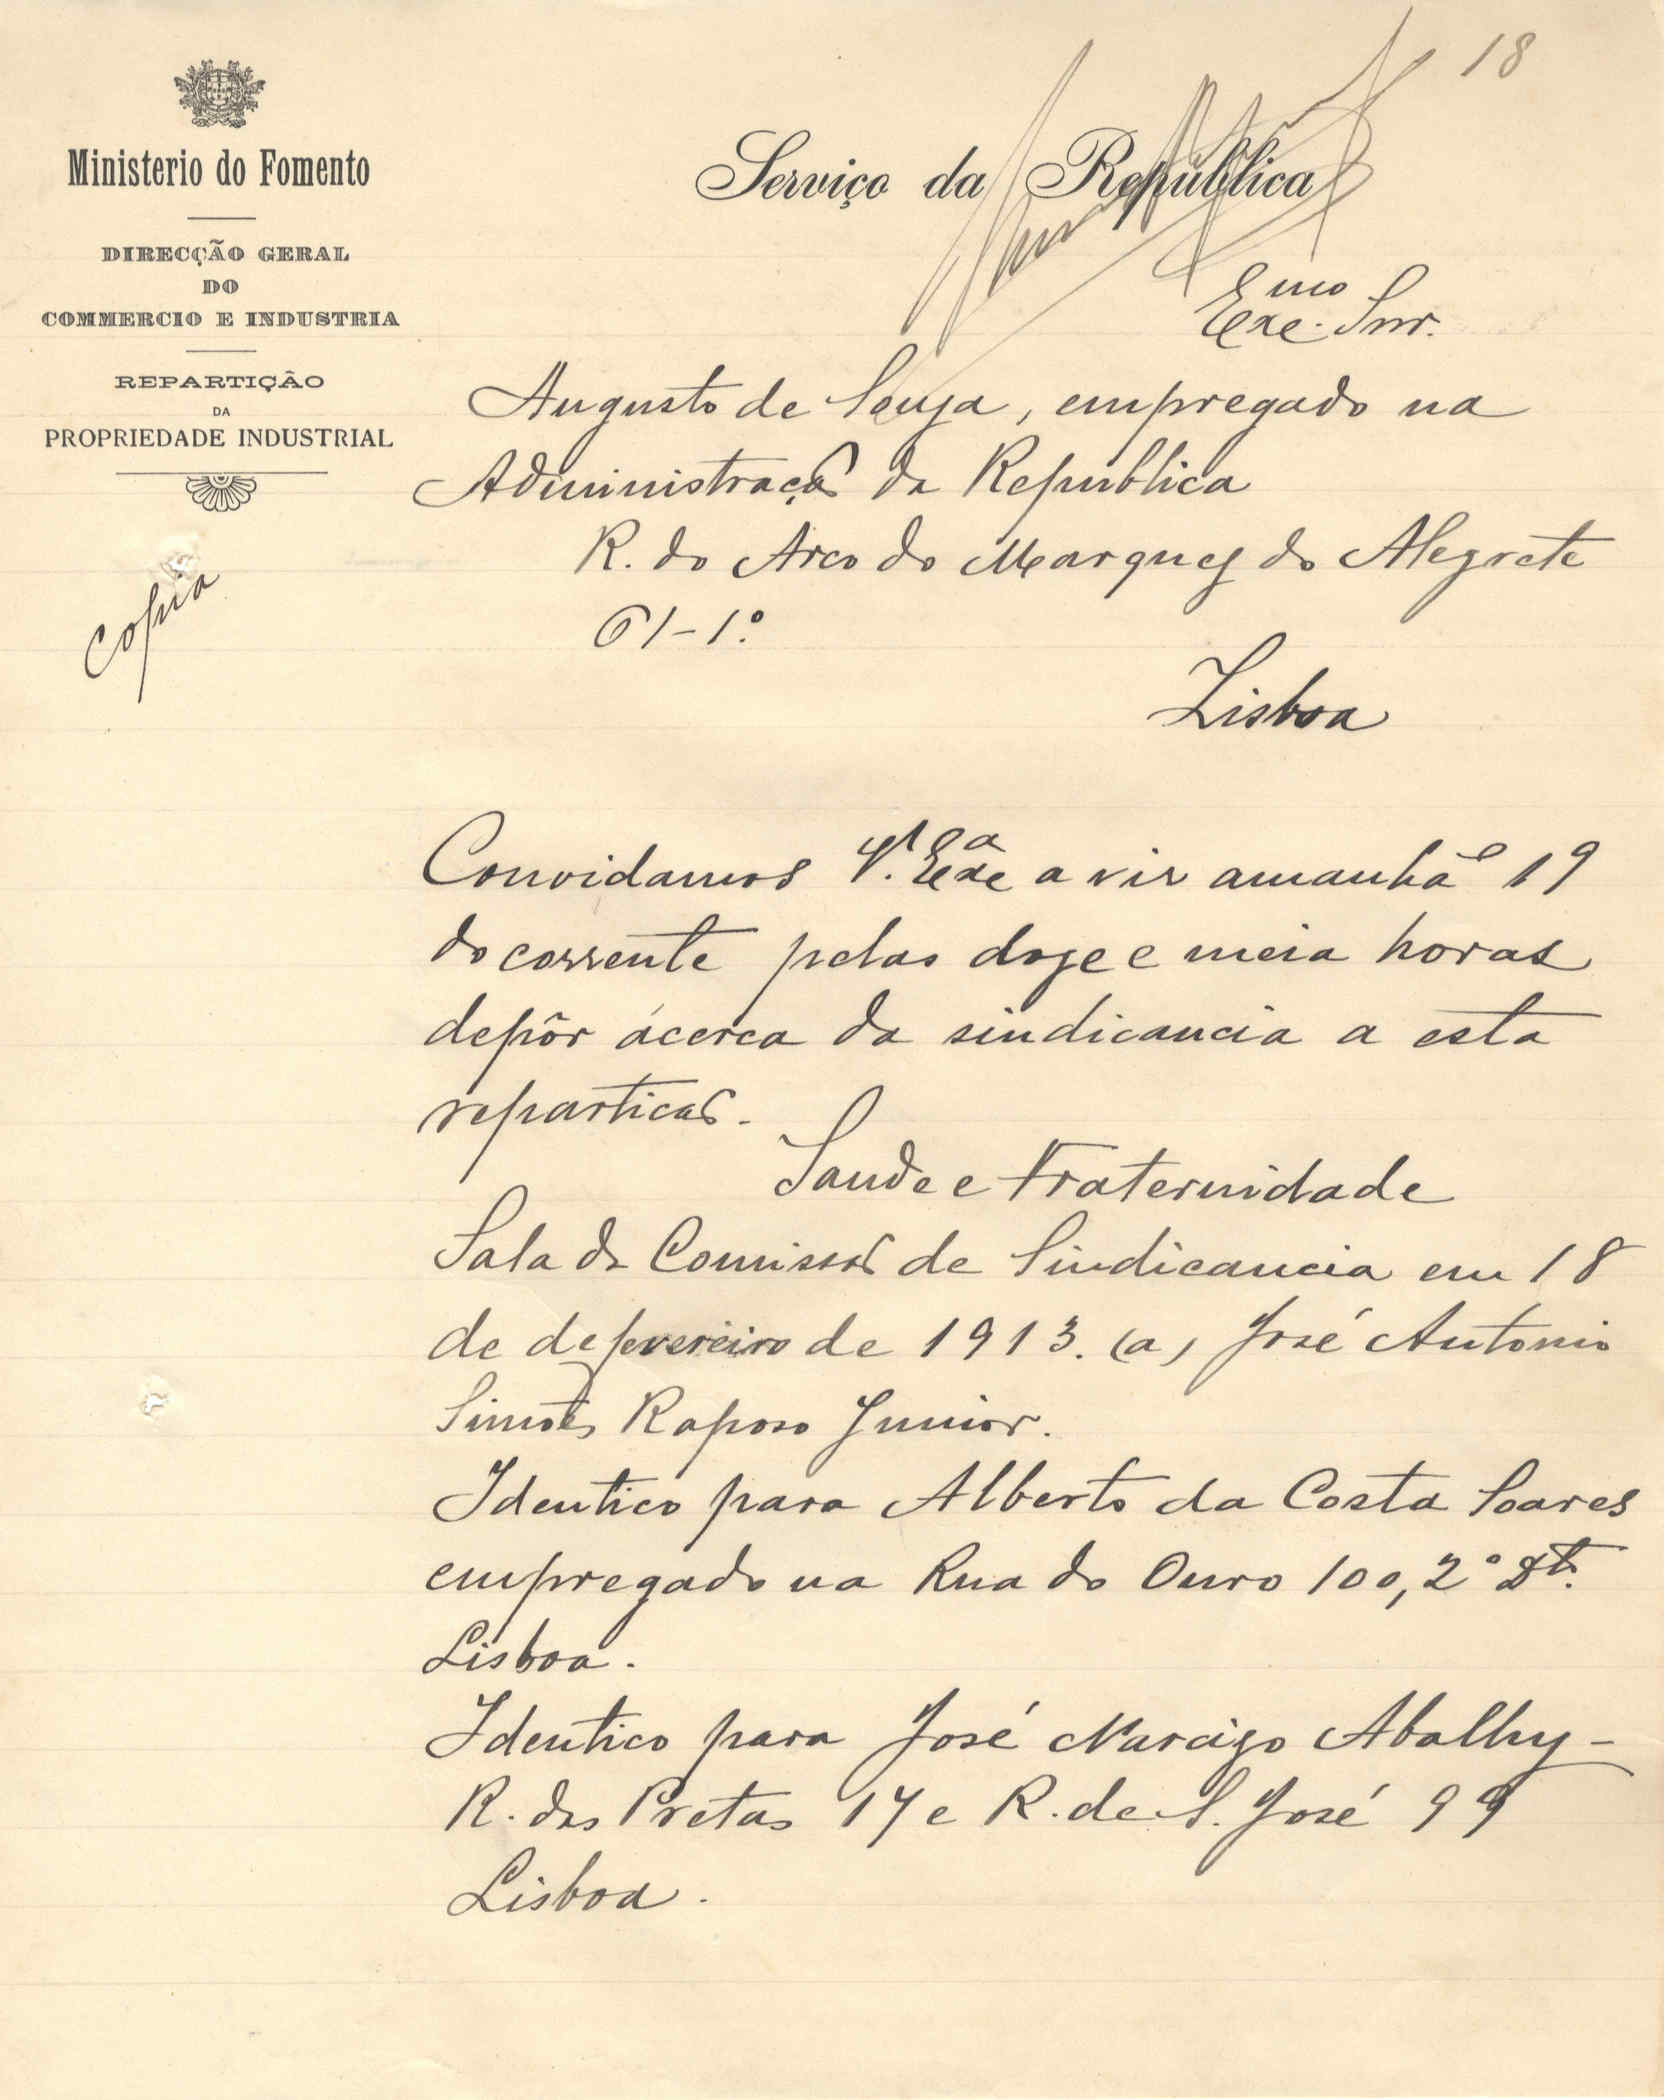 18
Ministerio do Fomento
DIRECÇÃO GERAL
DO
COMMERCIO E INDUSTRIA
REPARTIÇÃO
DA
PROPRIEDADE INDUSTRIAL
Copia
Serviço da República
Exmo Snr.
Augusto de Souza, empregado na
Administração da Republica
R. do Arco do Marquez do Alegrete
61-1º.
Lisboa
Convidamos V. Exca a vir amanhã 19
do corrente pelas doze e meia horas
depôr ácerca da sindicancia a esta
repartição.
Saude e Fraternidade
Sala da Comissão de Sindicancia em 18
de de fevereiro de 1913. (a) José Antonio
Simões Raposo Junior.
Identico para Alberto da Costa Soares
empregado na Rua do Ouro 100, 2º Dto.
Lisboa.
Identico para José Narcizo Abalhy -
R. das Pretas 17 e R. de S. José 99
Lisboa.